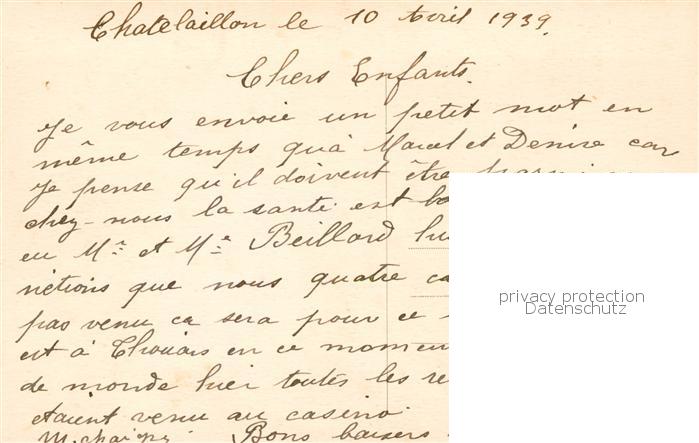 Chatelaillon le 10 Avril 1939.
Chers Enfants.
Je vous envoie un petit mot en
même temps qu'à Marcel et Denise car
Je pense qu'il doivent être
chez-nous la santé est
eu Mr et Me Beillard
nétions que nous quatre
pas venu ca sera pour ce
est à Thouars en ce moment
de monde hier toutes les
étaient venu au casino.
Bons baisers
privacy protection
Datenschutz